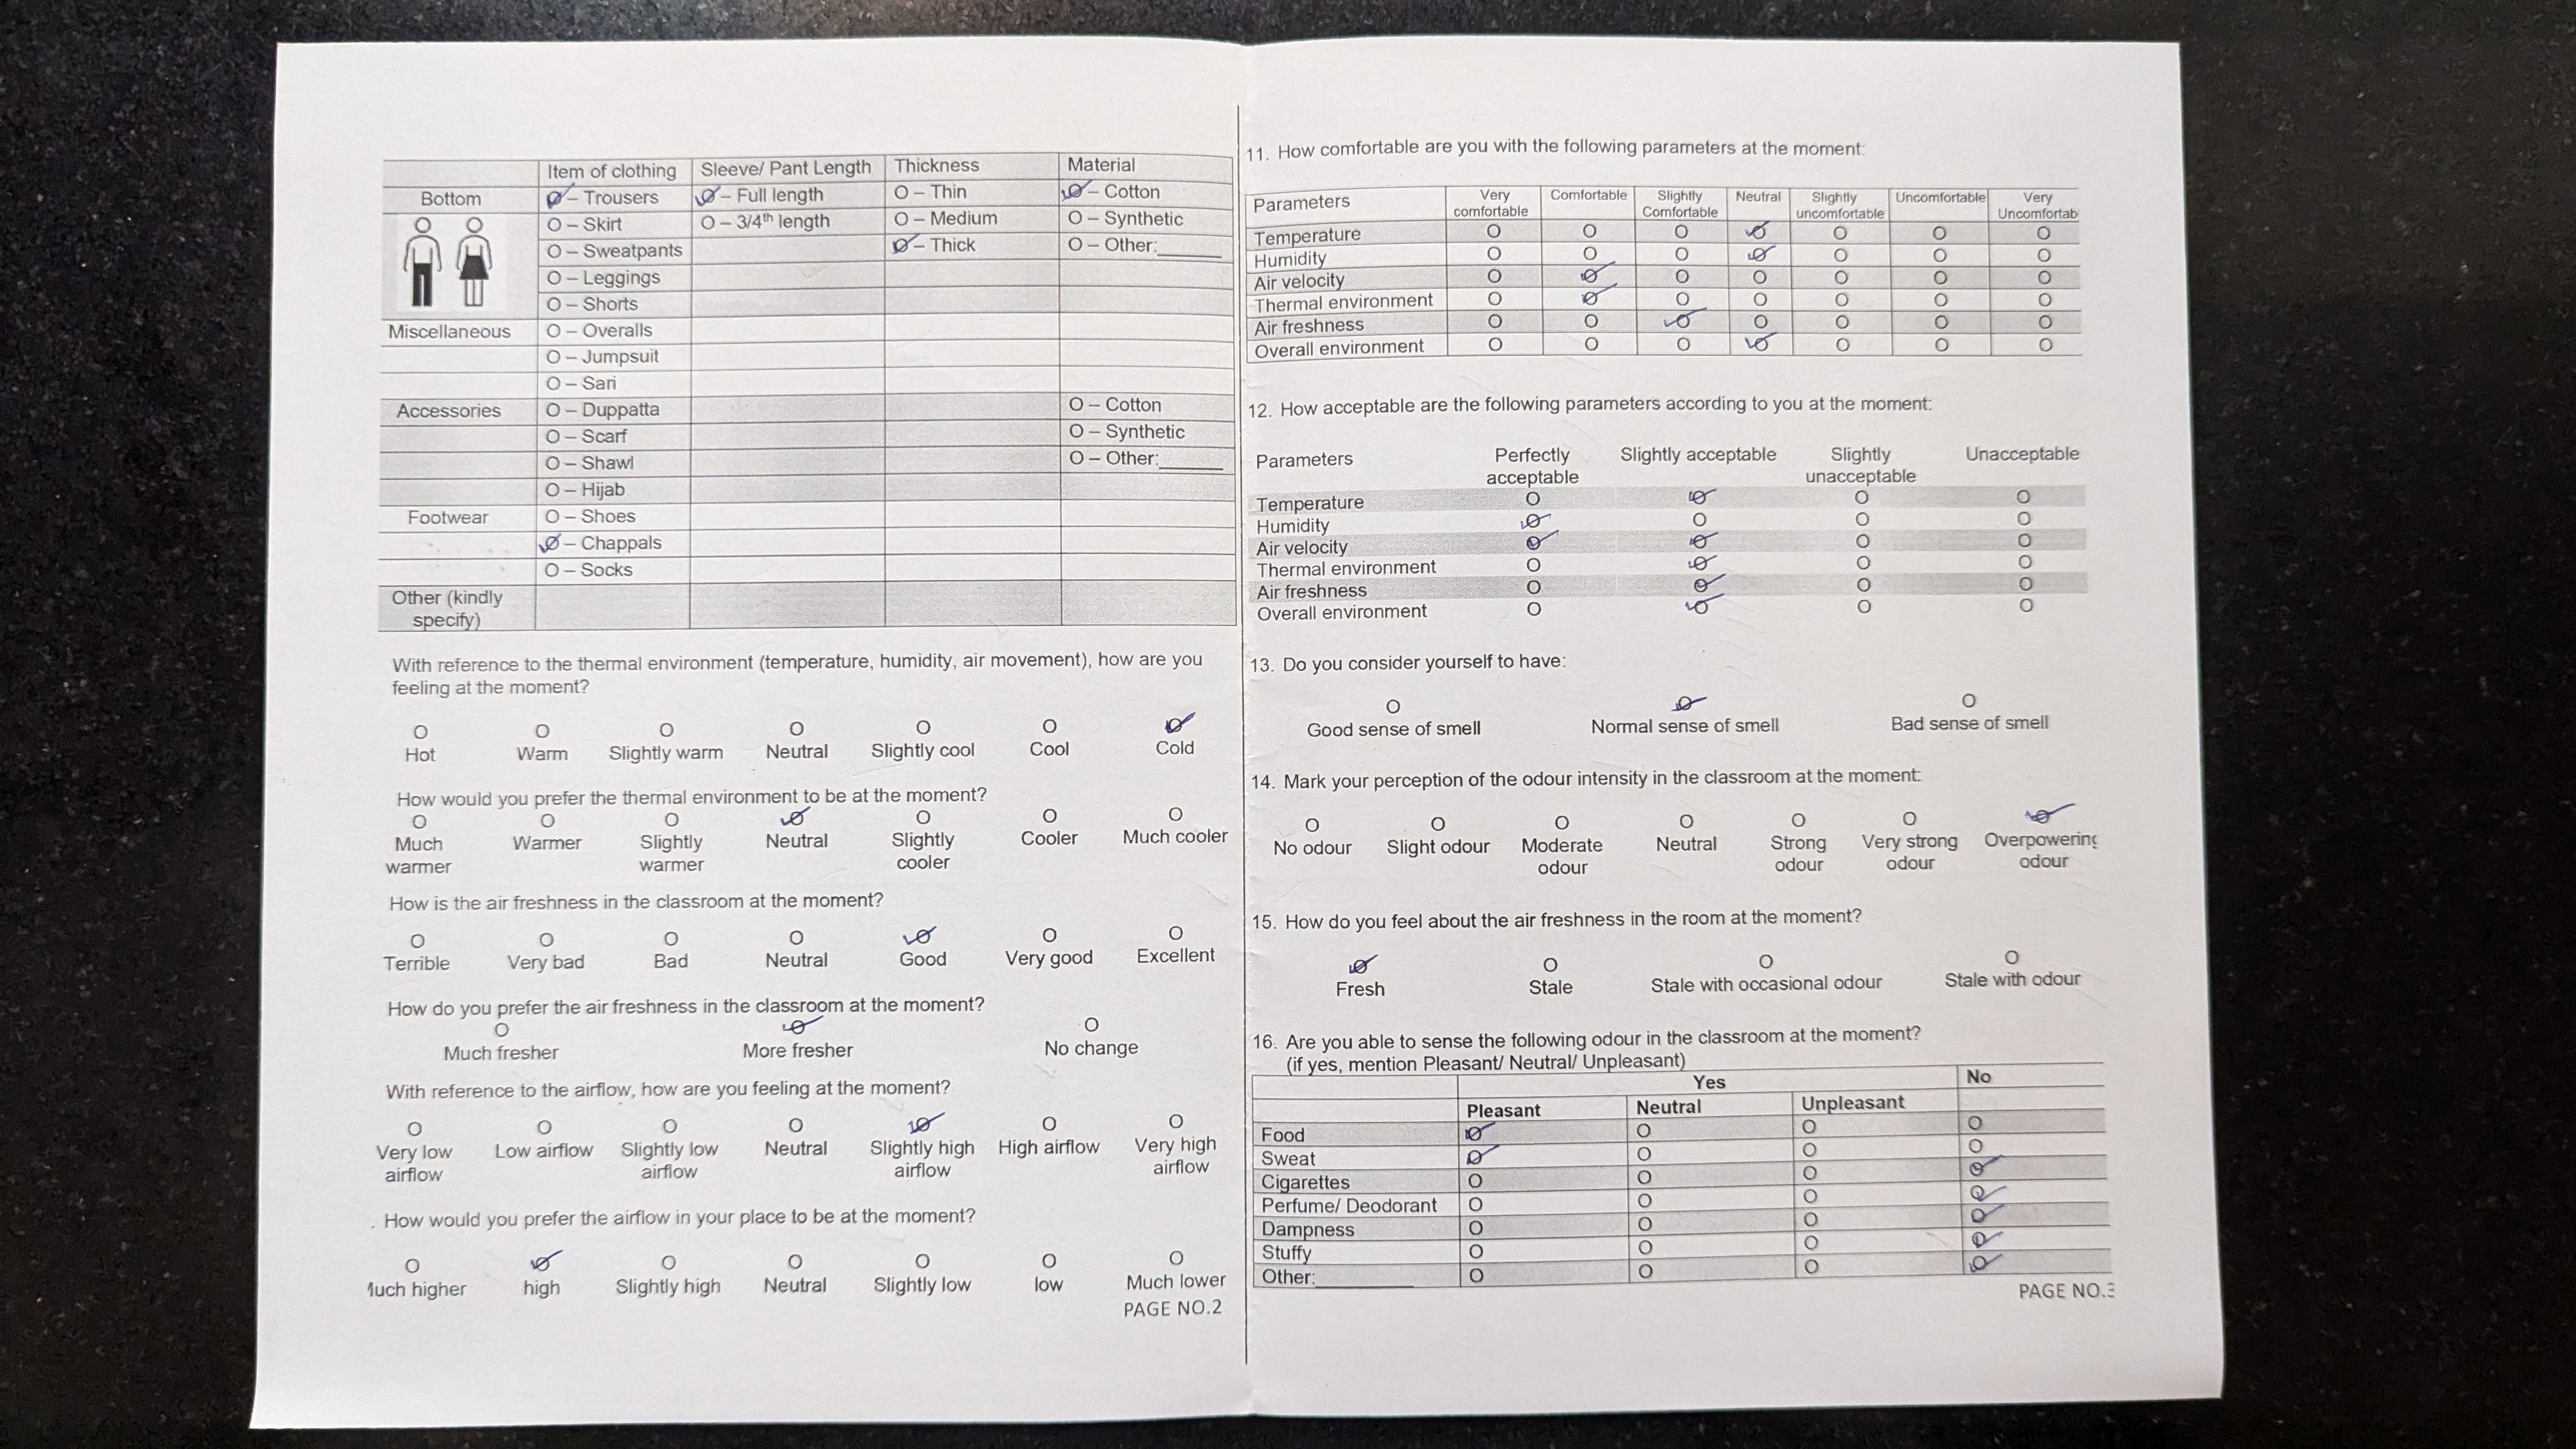 Item of clothing Sleeve/ Pant Length Thickness Material
Bottom O – Trousers O – Full length O – Thin O – Cotton
O – Skirt O – 3/4th length O – Medium O – Synthetic
O – Sweatpants O – Thick O – Other:______
O – Leggings
O – Shorts
Miscellaneous O – Overalls
O – Jumpsuit
O – Sari
Accessories O – Duppatta O – Cotton
O – Scarf O – Synthetic
O – Shawl O – Other:______
O – Hijab
Footwear O – Shoes
O – Chappals
O – Socks
Other (kindly
specify)
With reference to the thermal environment (temperature, humidity, air movement), how are you
feeling at the moment?
O O O O O O O
Hot Warm Slightly warm Neutral Slightly cool Cool Cold
How would you prefer the thermal environment to be at the moment?
O O O O O O O
Much Warmer Slightly Neutral Slightly Cooler Much cooler
warmer warmer cooler
How is the air freshness in the classroom at the moment?
O O O O O O O
Terrible Very bad Bad Neutral Good Very good Excellent
How do you prefer the air freshness in the classroom at the moment?
O O O
Much fresher More fresher No change
With reference to the airflow, how are you feeling at the moment?
O O O O O O O
Very low Low airflow Slightly low Neutral Slightly high High airflow Very high
airflow airflow airflow airflow
. How would you prefer the airflow in your place to be at the moment?
O O O O O O O
luch higher high Slightly high Neutral Slightly low low Much lower
PAGE NO.2
11. How comfortable are you with the following parameters at the moment:
Parameters Very Comfortable Slightly Neutral Slightly Uncomfortable Very
comfortable Comfortable uncomfortable Uncomfortab
Temperature O O O O O O O
Humidity O O O O O O O
Air velocity O O O O O O O
Thermal environment O O O O O O O
Air freshness O O O O O O O
Overall environment O O O O O O O
12. How acceptable are the following parameters according to you at the moment:
Parameters Perfectly Slightly acceptable Slightly Unacceptable
acceptable unacceptable
Temperature O O O O
Humidity O O O O
Air velocity O O O O
Thermal environment O O O O
Air freshness O O O O
Overall environment O O O O
13. Do you consider yourself to have:
O O O
Good sense of smell Normal sense of smell Bad sense of smell
14. Mark your perception of the odour intensity in the classroom at the moment:
O O O O O O O
No odour Slight odour Moderate Neutral Strong Very strong Overpowering
odour odour odour odour
15. How do you feel about the air freshness in the room at the moment?
O O O O
Fresh Stale Stale with occasional odour Stale with odour
16. Are you able to sense the following odour in the classroom at the moment?
(if yes, mention Pleasant/ Neutral/ Unpleasant)
Yes No
Pleasant Neutral Unpleasant
Food O O O O
Sweat O O O O
Cigarettes O O O O
Perfume/ Deodorant O O O O
Dampness O O O O
Stuffy O O O O
Other:__________ O O O O
PAGE NO.3